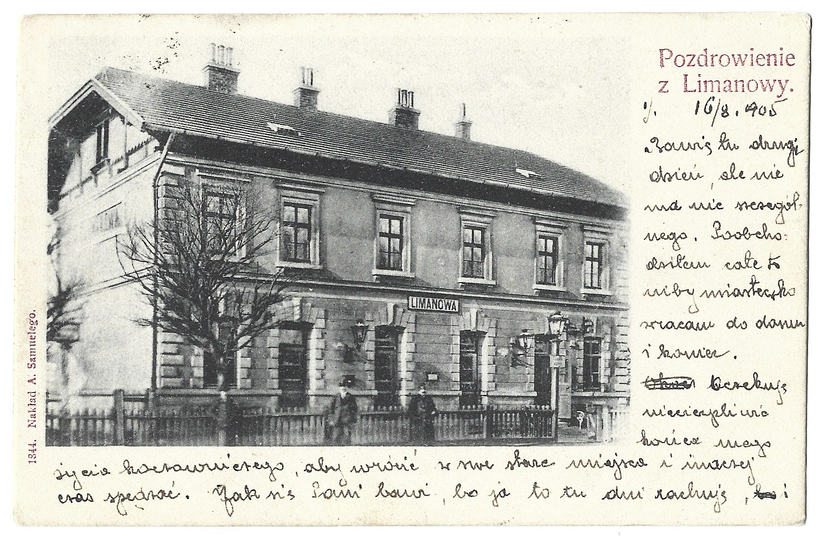 Pozdrowienie
z Limanowy.
16/8. 905
Bawię tu drugi
dzień, ale nie
ma nic szczegól-
nego. Poobcho-
dziłem całe to
niby miasteczko
wracam do domu
i koniec.
Oczekuję
niecierpliwie
końca mego
życia koczowniczego, aby wrócić w swe stare miejsca i inaczej
czas spędzać. Jak się Pani bawi, bo ja to tu dni rachuję, i
LIMANOWA
1844. Nakład A. Samuelego.